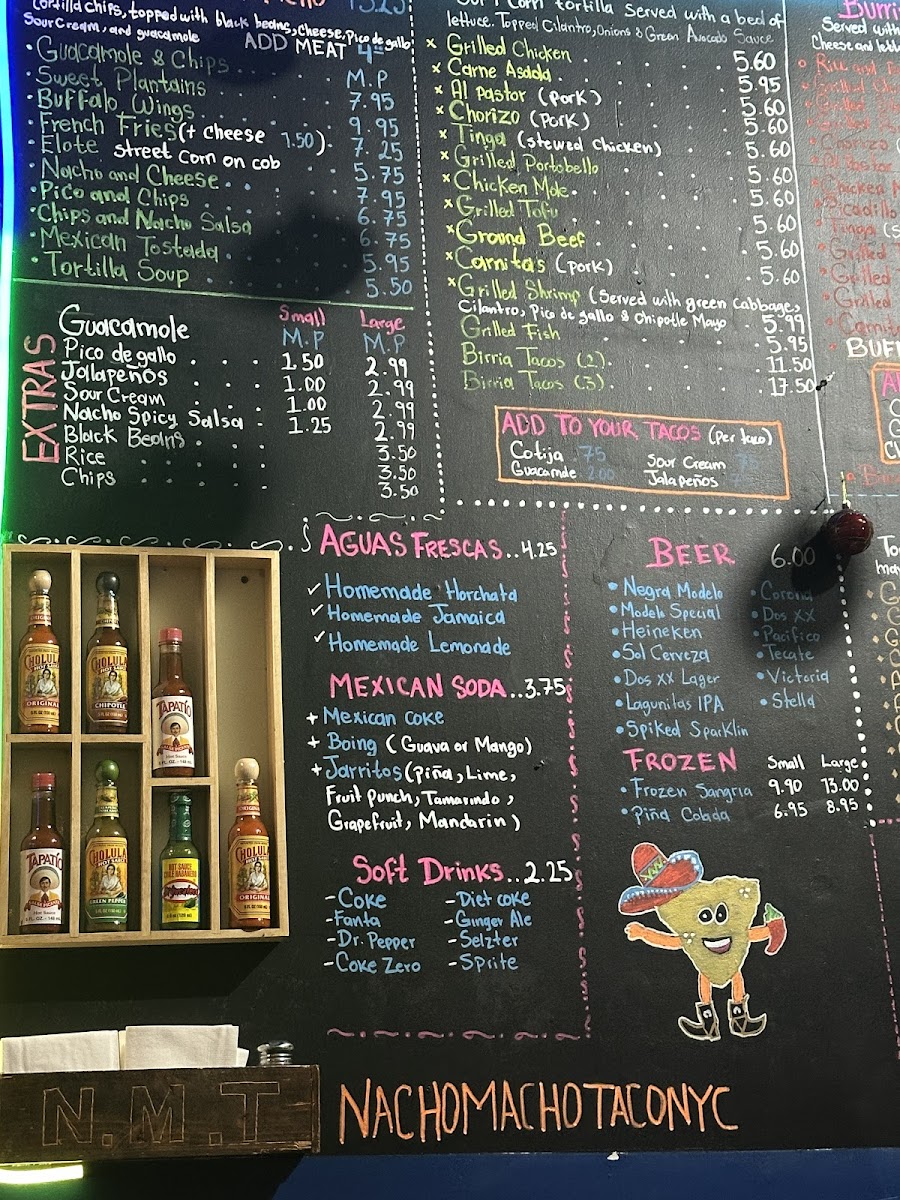 13.25
tortilla chips, topped with black beans, cheese, Pico de gallo,
Sour Cream, and guacamole
ADD MEAT
• Guacamole & Chips . . . M.P
• Sweet Plantains . . . 7.95
• Buffalo Wings . . . 9.95
• French Fries (+ cheese 1.50) . 7.25
• Elote street Corn on cob 5.75
Nacho and Cheese . . . 7.95
• Pico and Chips . . . 6.75
• Chips and Nacho Salsa 6.75
• Mexican Tostada . . . 5.95
• Tortilla Soup . . . 5.50
EXTRAS
Small Large
Guacamole M.P M.P
Pico de gallo . . . 1.50 2.99
Jalapeños . . . 1.00 2.99
Sour Cream . . . 1.00 2.99
Nacho Spicy Salsa . 1.25 2.99
Black Beans . . . 3.50
Rice . . . 3.50
Chips . . . 3.50
corn tortilla served with a bed of
lettuce. Topped Cilantro, Onions & Green Avocado Sauce
x Grilled Chicken . . . 5.60
x Carne Asada . . . 5.95
x Al Pastor (pork) . . . 5.60
x Chorizo (pork) . . . 5.60
x Tinga (stewed chicken) . . . 5.60
x Grilled Portobello . . . 5.60
x Chicken Mole . . . 5.60
x Grilled Tofu . . . 5.60
x Ground Beef . . . 5.60
x Carnitas (pork) . . . 5.60
x Grilled Shrimp (Served with green cabbage,
Cilantro, Pico de gallo & Chipotle Mayo . 5.99
Grilled Fish . . . 5.95
Birria Tacos (2) . . . 11.50
Birria Tacos (3) . . . 17.50
ADD TO YOUR TACOS (per taco)
Cotija .75 Sour Cream .75
Guacamole 2.00 Jalapeños
Burri
Served with
Cheese and lett
AGUAS FRESCAS..4.25
✓ Homemade Horchata
✓ Homemade Jamaica
✓ Homemade Lemonade
MEXICAN SODA..3.75
+ Mexican coke
+ Boing (Guava or Mango)
+ Jarritos (piña, Lime,
Fruit punch, Tamarindo,
Grapefruit, Mandarin)
Soft Drinks..2.25
- Coke - Diet coke
- Fanta - Ginger Ale
- Dr. Pepper - Selzter
- Coke Zero - Sprite
BEER 6.00
• Negra Modelo • Corona
• Modelo Special • Dos XX
• Heineken • Pacifico
• Sol Cerveza • Tecate
• Dos XX Lager • Victoria
• Lagunitas IPA • Stella
• Spiked Sparklin
FROZEN Small Large
• Frozen Sangria 9.90 13.00
• Piña Colada 6.95 8.95
CHOLULA
ORIGINAL
CHOLULA
CHIPOTLE
TAPATIO
TAPATIO
CHOLULA
GREEN PEPPER
HOT SAUCE
CHILE HABANERO
CHOLULA
ORIGINAL
N.M.T
NACHOMACHOTACONYC